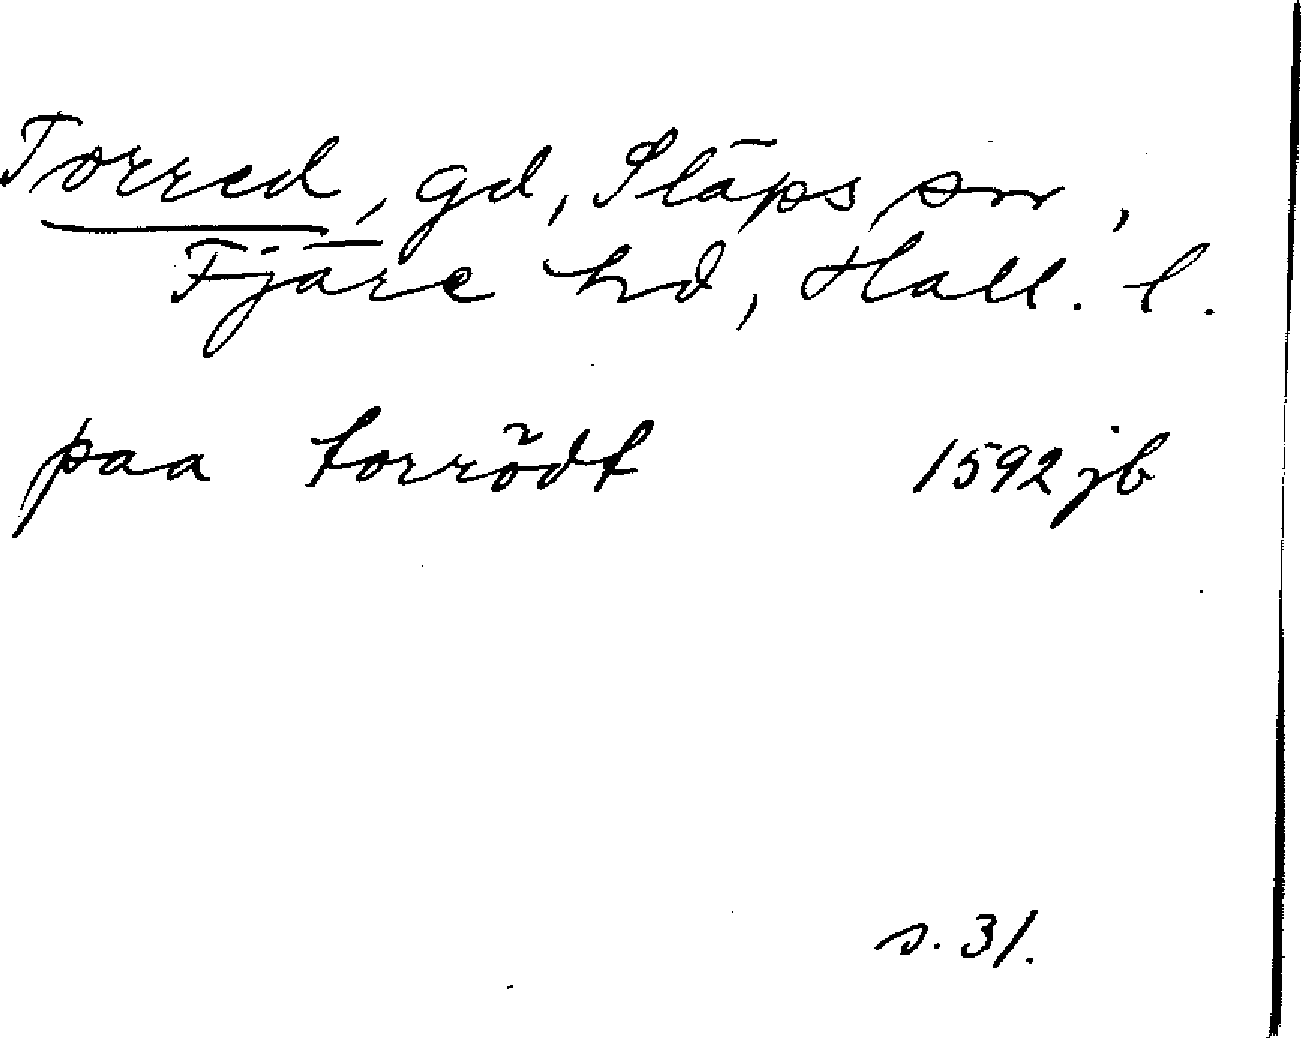 Torred, gd, Släps sn,
Fjäre hd, Hall. l.
paa torrödt 1592 jb
s. 31.